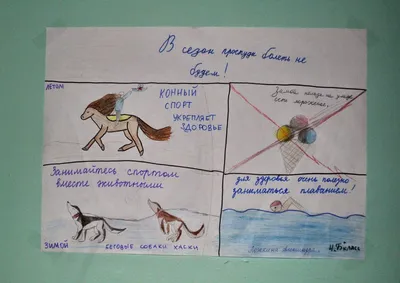 В сезон простуды болеть не
будем!
ЛЕТОМ
КОННЫЙ
СПОРТ
УКРЕПЛЯЕТ
ЗДОРОВЬЕ
Зимой нельзя на улице
есть мороженое.
Занимайтесь спортом
вместе животными
ЗИМОЙ
БЕГОВЫЕ СОБАКИ ХАСКИ
для здоровья очень полезно
заниматься плаванием!